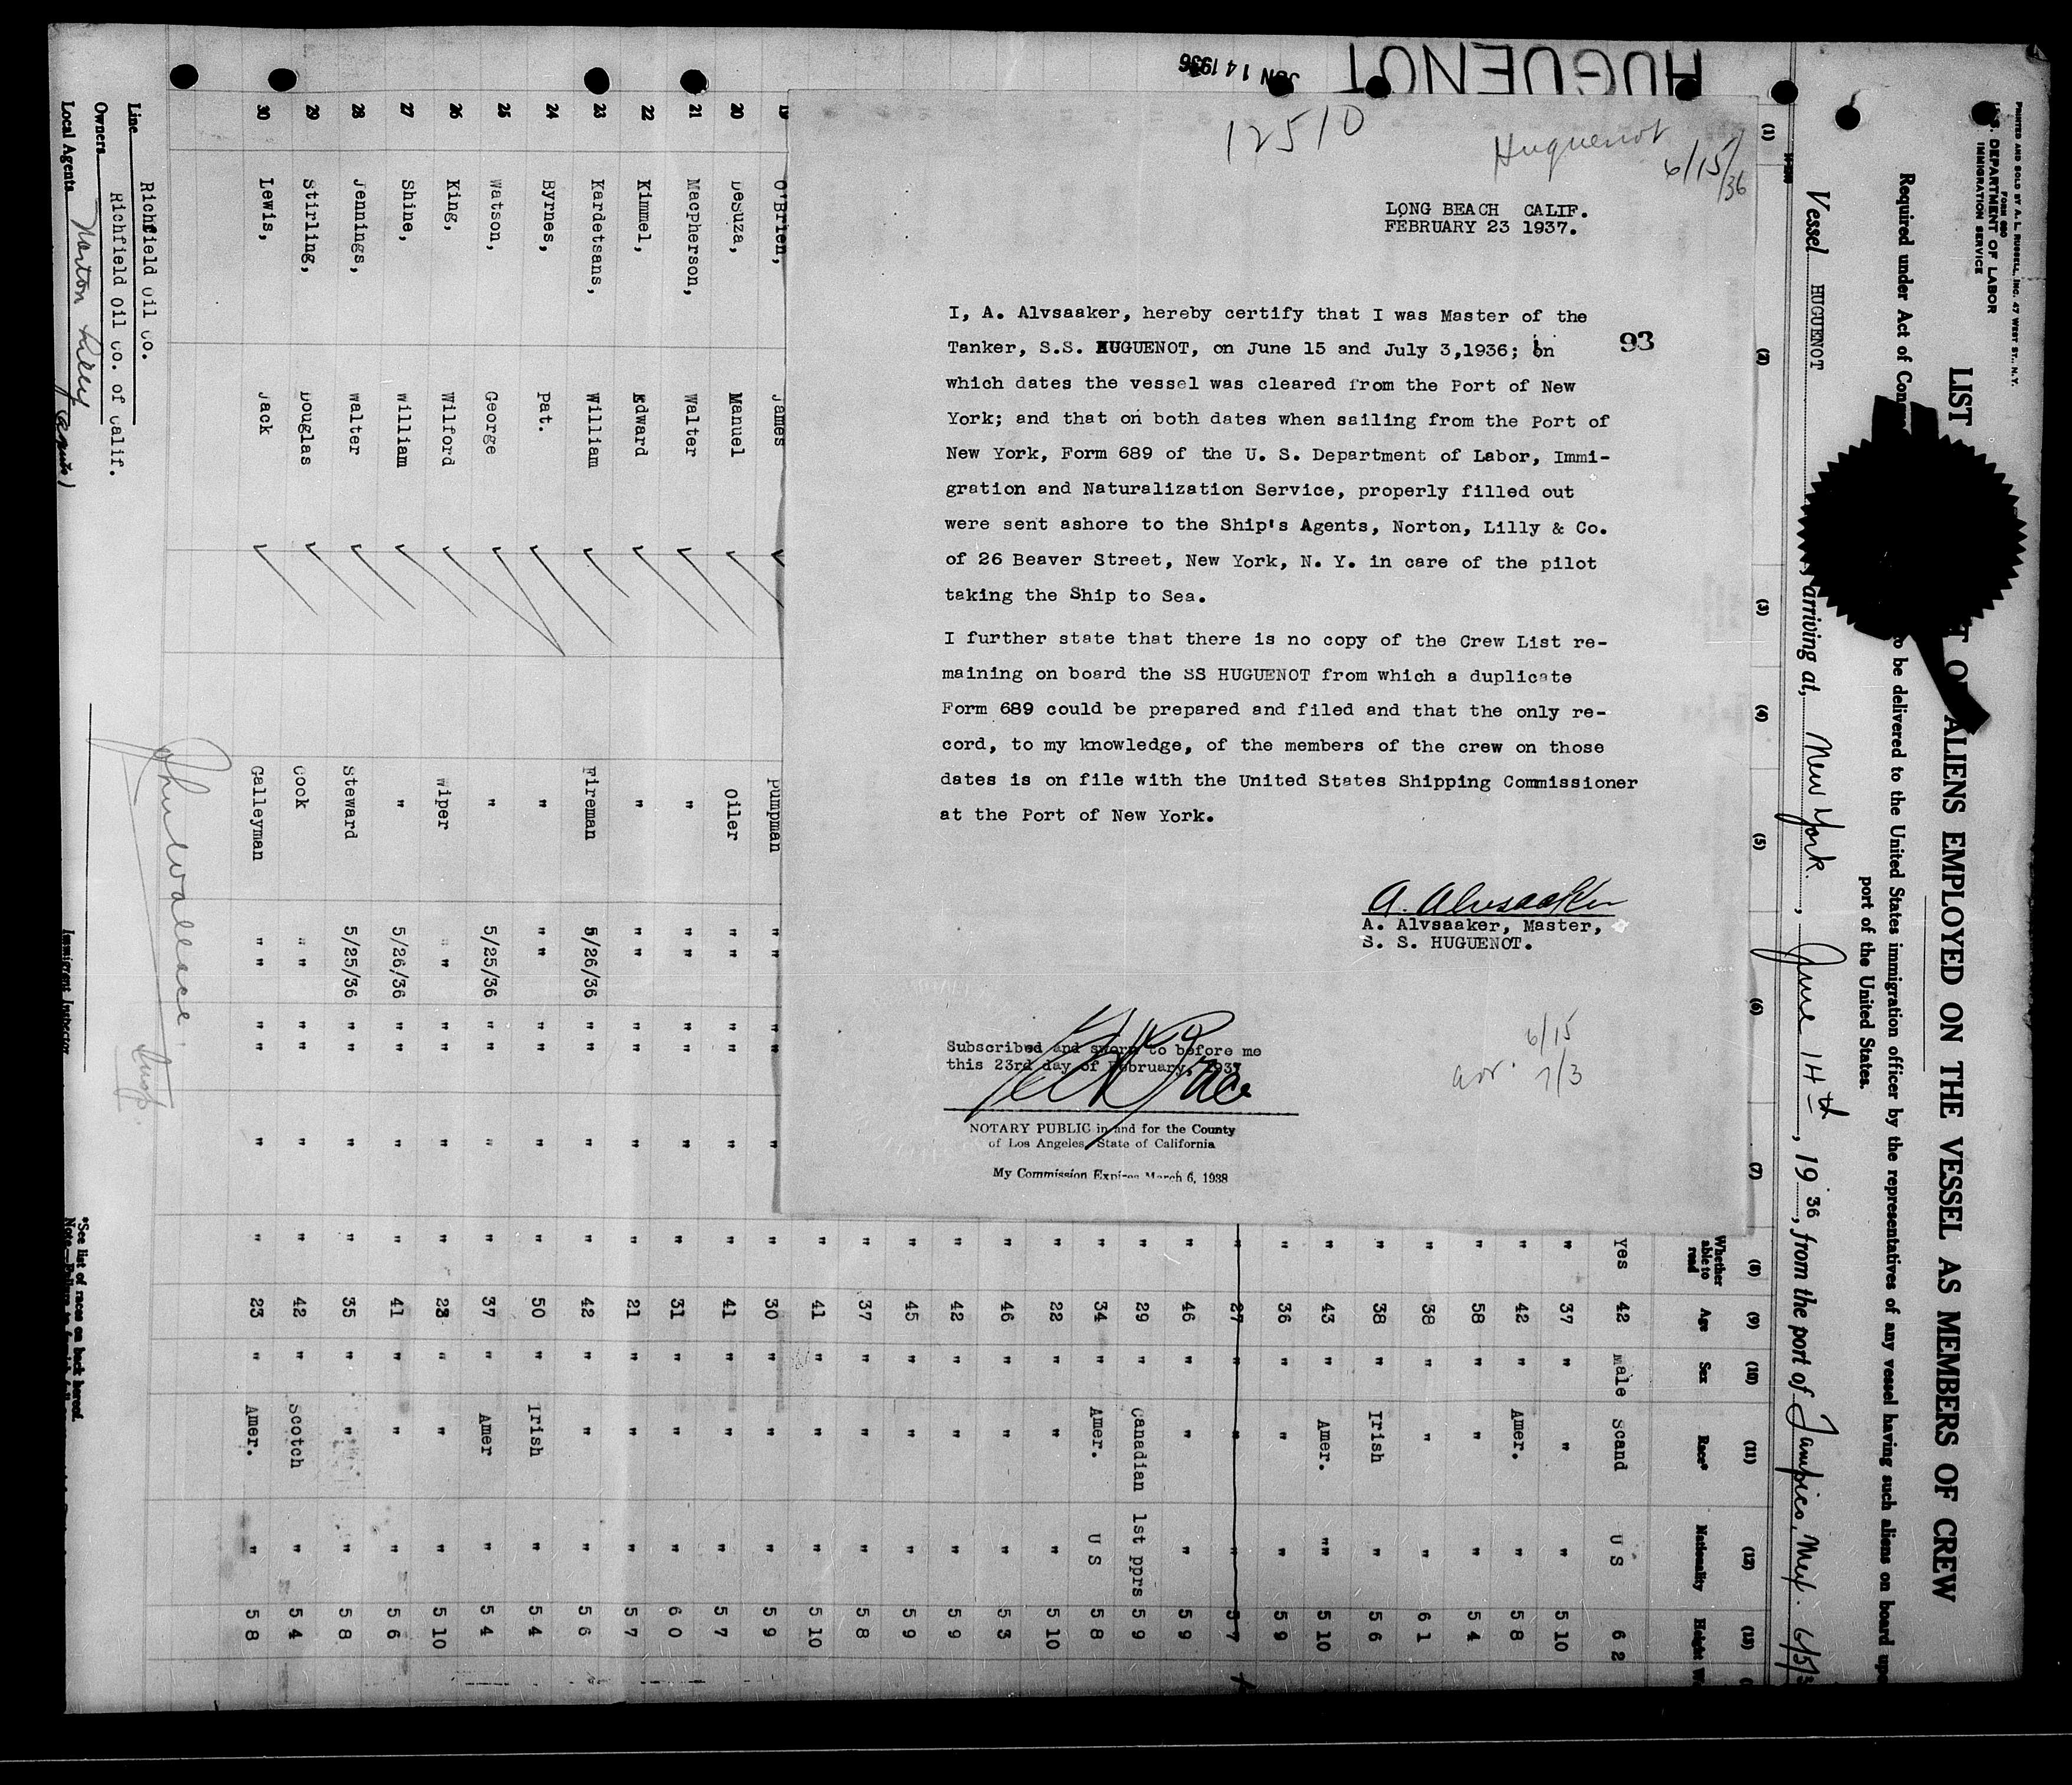 HUGUENOT
JUN 14 1936
12510
Huguenot
6/15/36
LONG BEACH CALIF.
FEBRUARY 23 1937.
93
I, A. Alvsaaker, hereby certify that I was Master of the
Tanker, S.S. HUGUENOT, on June 15 and July 3,1936; on
which dates the vessel was cleared from the Port of New
York; and that on both dates when sailing from the Port of
New York, Form 689 of the U. S. Department of Labor, Immi-
gration and Naturalization Service, properly filled out
were sent ashore to the Ship's Agents, Norton, Lilly & Co.
of 26 Beaver Street, New York, N. Y. in care of the pilot
taking the Ship to Sea.
I further state that there is no copy of the Crew List re-
maining on board the SS HUGUENOT from which a duplicate
Form 689 could be prepared and filed and that the only re-
cord, to my knowledge, of the members of the crew on those
dates is on file with the United States Shipping Commissioner
at the Port of New York.
A. Alvsaaker
A. Alvsaaker, Master,
S. S. HUGUENOT.
6/15
arr. 7/3
Subscribed and sworn to before me
this 23rd day of February, 1937
NOTARY PUBLIC in and for the County
of Los Angeles, State of California
My Commission Expires March 6, 1938
PRINTED AND SOLD BY A. L. RUSSELL, INC. 47 WEST ST., N.Y.
FORM 680
U.S. DEPARTMENT OF LABOR
IMMIGRATION SERVICE
LIST OF ALIENS EMPLOYED ON THE VESSEL AS MEMBERS OF CREW
Required under Act of Con to be delivered to the United States immigration officer by the representatives of any vessel having such aliens on board upo
port of the United States.
Vessel HUGUENOT, arriving at, New York., June 14th, 1936, from the port of Tampico, Mex. 6/5/3
(1) (2) (3) (4) (5) (6) (7) (8) (9) (10) (11) (12) (13)
Whether able to read Age Sex Race* Nationality Height
Yes 42 Male Scand U S 6 2
" 37 " " " 5 10
" 42 " Amer. " 5 8
" 58 " " " 5 4
" 38 " " " 6 1
" 38 " Irish " 5 6
" 43 " Amer. "" 5 10
" 36 " " " 5 9
" 27 " " " 5 7
" 46 " " " 5 9
" 29 " Canadian 1st pprs 5 9
" 34 " Amer. U S 5 8
" 22 " " " 5 10
" 46 " " " 5 3
" 42 " " " 5 9
" 45 " " " 5 9
" 37 " " " 5 8
" 41 " " " 5 10
19 O'Brien, James Pumpman " " " " 30 " " " 5 9
20 Desuza, Manuel Oiler " " " " " " 41 " " " 5 7
21 Macpherson, Walter " " " " " " " 31 " " " 6 0
22 Kimmel, Edward " " " " " " " 21 " " " 5 7
23 Kardetsans, William Fireman 5/26/36 " " " " 42 " " " 5 6
24 Byrnes, Pat. " " " " " " " 50 " Irish " 5 4
25 Watson, George " 5/25/36 " " " " 37 " Amer " 5 4
26 King, Wilford Wiper " " " " " " 23 " " " 5 10
27 Shine, William " 5/26/36 " " " " 41 " " " 5 6
28 Jennings, Walter Steward 5/25/36 " " " " 35 " " " 5 8
29 Stirling, Douglas Cook " " " " " " 42 " Scotch " 5 4
30 Lewis, Jack Galleyman " " " " " " 23 " Amer. " 5 8
Line Richfield Oil Co.
Owners Richfield Oil Co. of Calif.
Local Agents Norton Lilly (Agents)
John Wallace
Insp
Immigrant Inspector
*See list of races on back hereof.